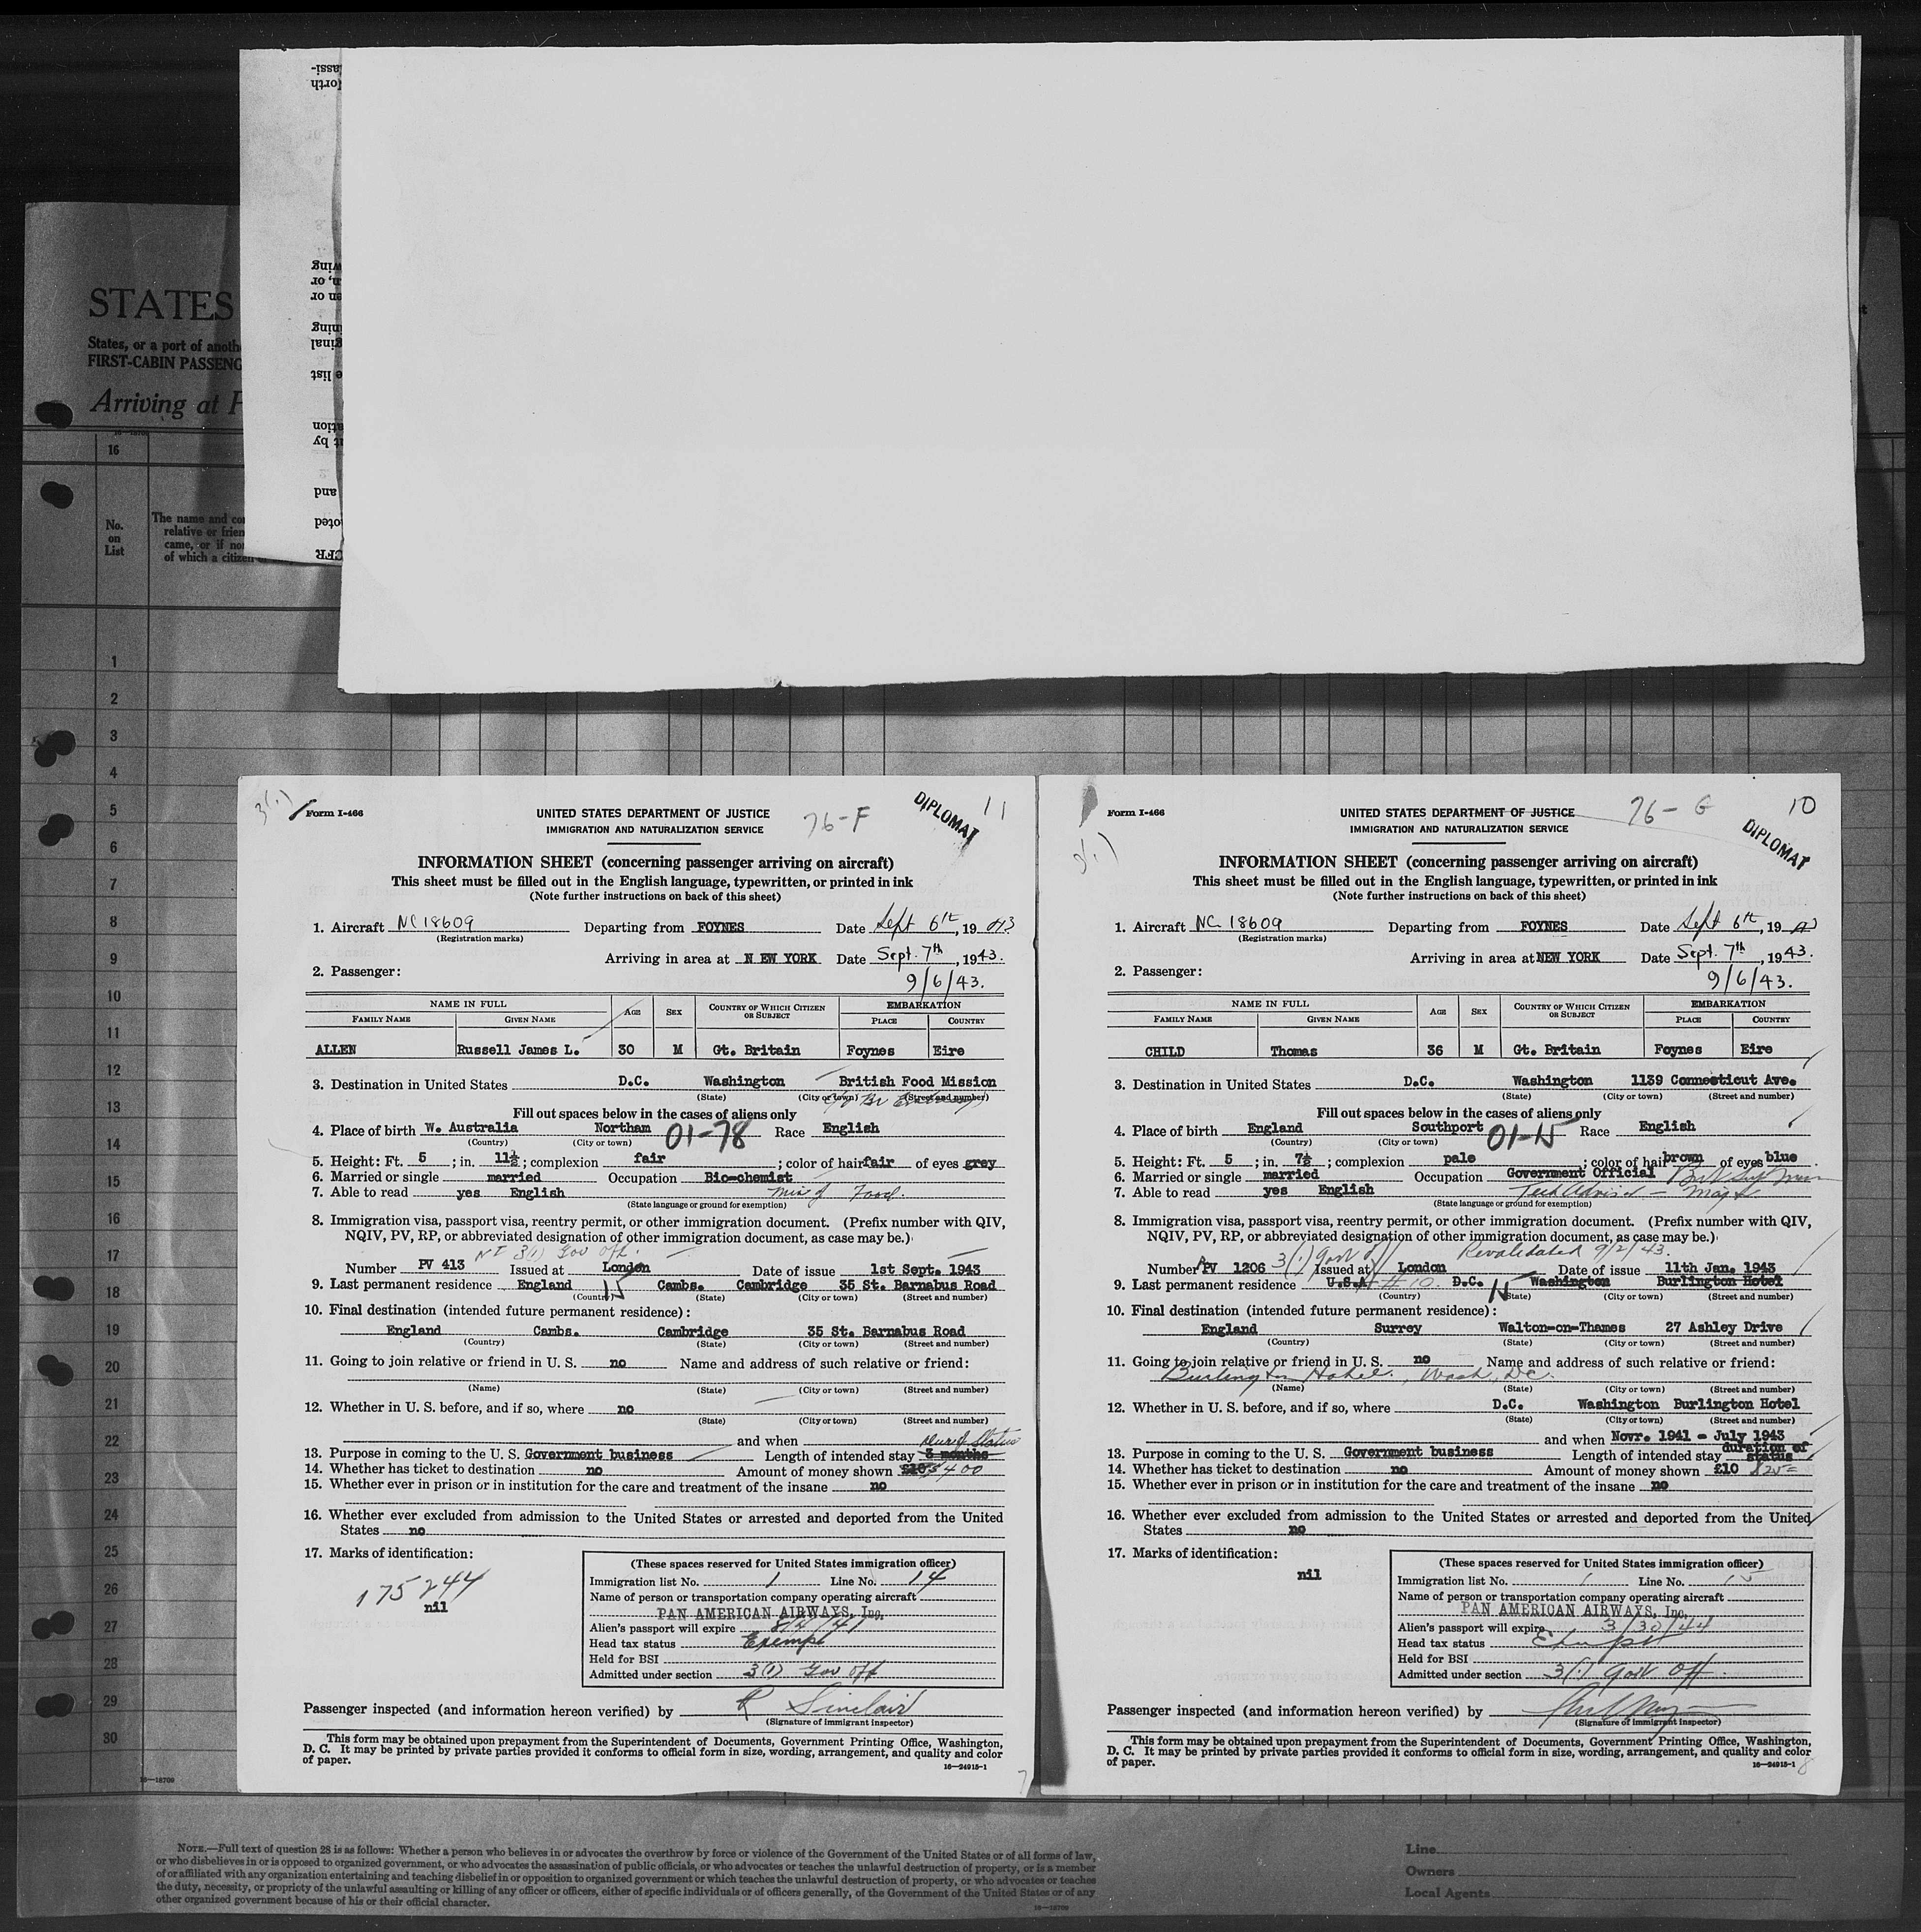 STATES
States, or a port of anoth
FIRST-CABIN PASSENG
Arriving at
16
No.
on
List
The name and co
relative or frien
came, or if no
of which a citizen
1
2
3
4
5
6
7
8
9
10
11
12
13
14
15
16
17
18
19
20
21
22
23
24
25
26
27
28
29
30
16—18709
3(1)
Form I-466
UNITED STATES DEPARTMENT OF JUSTICE
IMMIGRATION AND NATURALIZATION SERVICE
76-F
DIPLOMAT
11
INFORMATION SHEET (concerning passenger arriving on aircraft)
This sheet must be filled out in the English language, typewritten, or printed in ink
(Note further instructions on back of this sheet)
1. Aircraft NC 18609 Departing from FOYNES Date Sept 6th, 1943
(Registration marks)
Arriving in area at N EW YORK Date Sept. 7th, 1943.
2. Passenger:
9/6/43.
NAME IN FULL AGE SEX COUNTRY OF WHICH CITIZEN OR SUBJECT EMBARKATION
FAMILY NAME GIVEN NAME PLACE COUNTRY
ALLEN Russell James L. 30 M Gt. Britain Foynes Eire
3. Destination in United States D.C. Washington British Food Mission
(State) (City or town) (Street and number)
Fill out spaces below in the cases of aliens only
4. Place of birth W. Australia Northam 01-78 Race English
(Country) (City or town)
5. Height: Ft. 5 ; in. 11½ ; complexion fair ; color of hair fair of eyes grey
6. Married or single married Occupation Bio-chemist
7. Able to read yes English Min of Food.
(State language or ground for exemption)
8. Immigration visa, passport visa, reentry permit, or other immigration document. (Prefix number with QIV,
NQIV, PV, RP, or abbreviated designation of other immigration document, as case may be.)
3(1) Gov off.
Number PV 413 Issued at London Date of issue 1st Sept. 1943
9. Last permanent residence England Cambs. Cambridge 35 St. Barnabus Road
(Country) 15 (State) (City or town) (Street and number)
10. Final destination (intended future permanent residence):
England Cambs. Cambridge 35 St. Barnabus Road
(Country) (State) (City or town) (Street and number)
11. Going to join relative or friend in U. S. no Name and address of such relative or friend:
(Name) (State) (City or town) (Street and number)
12. Whether in U. S. before, and if so, where no
(State) (City or town) (Street and number)
and when
Dur of Status
13. Purpose in coming to the U. S. Government business Length of intended stay 3 months
14. Whether has ticket to destination no Amount of money shown £10 $400
15. Whether ever in prison or in institution for the care and treatment of the insane no
16. Whether ever excluded from admission to the United States or arrested and deported from the United
States no
17. Marks of identification:
175244
nil
(These spaces reserved for United States immigration officer)
Immigration list No. 1 Line No. 14
Name of person or transportation company operating aircraft
PAN AMERICAN AIRWAYS, Inc.
Alien's passport will expire
Head tax status Exempt
Held for BSI
Admitted under section 3(1) Gov off
Passenger inspected (and information hereon verified) by R Sinclair
(Signature of immigrant inspector)
This form may be obtained upon prepayment from the Superintendent of Documents, Government Printing Office, Washington,
D. C. It may be printed by private parties provided it conforms to official form in size, wording, arrangement, and quality and color
of paper.
16—24915-1
7
3(1)
Form I-466
UNITED STATES DEPARTMENT OF JUSTICE
IMMIGRATION AND NATURALIZATION SERVICE
76-G
10
DIPLOMAT
INFORMATION SHEET (concerning passenger arriving on aircraft)
This sheet must be filled out in the English language, typewritten, or printed in ink
(Note further instructions on back of this sheet)
1. Aircraft NC 18609 Departing from FOYNES Date Sept 6th, 1943
(Registration marks)
Arriving in area at NEW YORK Date Sept. 7th, 1943.
2. Passenger:
9/6/43.
NAME IN FULL AGE SEX COUNTRY OF WHICH CITIZEN OR SUBJECT EMBARKATION
FAMILY NAME GIVEN NAME PLACE COUNTRY
CHILD Thomas 36 M Gt. Britain Foynes Eire
3. Destination in United States D.C. Washington 1139 Connecticut Ave.
(State) (City or town) (Street and number)
Fill out spaces below in the cases of aliens only
4. Place of birth England Southport 01-15 Race English
(Country) (City or town)
5. Height: Ft. 5 ; in. 7½ ; complexion pale ; color of hair brown of eyes blue
6. Married or single married Occupation Government Official
7. Able to read yes English
(State language or ground for exemption)
8. Immigration visa, passport visa, reentry permit, or other immigration document. (Prefix number with QIV,
NQIV, PV, RP, or abbreviated designation of other immigration document, as case may be.)
3(1) Govt Off Revalidated 9/2/43.
Number PV 1206 Issued at London Date of issue 11th Jan. 1943
9. Last permanent residence U.S.A. #10. D.C. Washington Burlington Hotel
(Country) 15 (State) (City or town) (Street and number)
10. Final destination (intended future permanent residence):
England Surrey Walton-on-Thames 27 Ashley Drive
(Country) (State) (City or town) (Street and number)
11. Going to join relative or friend in U. S. no Name and address of such relative or friend:
Burlington Hotel, Wash, DC.
(Name) (State) (City or town) (Street and number)
12. Whether in U. S. before, and if so, where D.C. Washington Burlington Hotel
(State) (City or town) (Street and number)
and when Novr. 1941 - July 1943
13. Purpose in coming to the U. S. Government business Length of intended stay duration of status
14. Whether has ticket to destination no Amount of money shown £10 $25=
15. Whether ever in prison or in institution for the care and treatment of the insane no
16. Whether ever excluded from admission to the United States or arrested and deported from the United
States no
17. Marks of identification:
nil
(These spaces reserved for United States immigration officer)
Immigration list No. 1 Line No. 15
Name of person or transportation company operating aircraft
PAN AMERICAN AIRWAYS, Inc.
Alien's passport will expire 3/30/44
Head tax status Exempt
Held for BSI
Admitted under section 3(1) Govt Off.
Passenger inspected (and information hereon verified) by
(Signature of immigrant inspector)
This form may be obtained upon prepayment from the Superintendent of Documents, Government Printing Office, Washington,
D. C. It may be printed by private parties provided it conforms to official form in size, wording, arrangement, and quality and color
of paper.
16—24915-1
8
NOTE.—Full text of question 28 is as follows: Whether a person who believes in or advocates the overthrow by force or violence of the Government of the United States or of all forms of law,
or who disbelieves in or is opposed to organized government, or who advocates the assassination of public officials, or who advocates or teaches the unlawful destruction of property, or is a member
of or affiliated with any organization entertaining and teaching disbelief in or opposition to organized government or which teaches the unlawful destruction of property, or who advocates or teaches
the duty, necessity, or propriety of the unlawful assaulting or killing of any officer or officers, either of specific individuals or of officers generally, of the Government of the United States or of any
other organized government because of his or their official character.
16—18709
Line
Owners
Local Agents